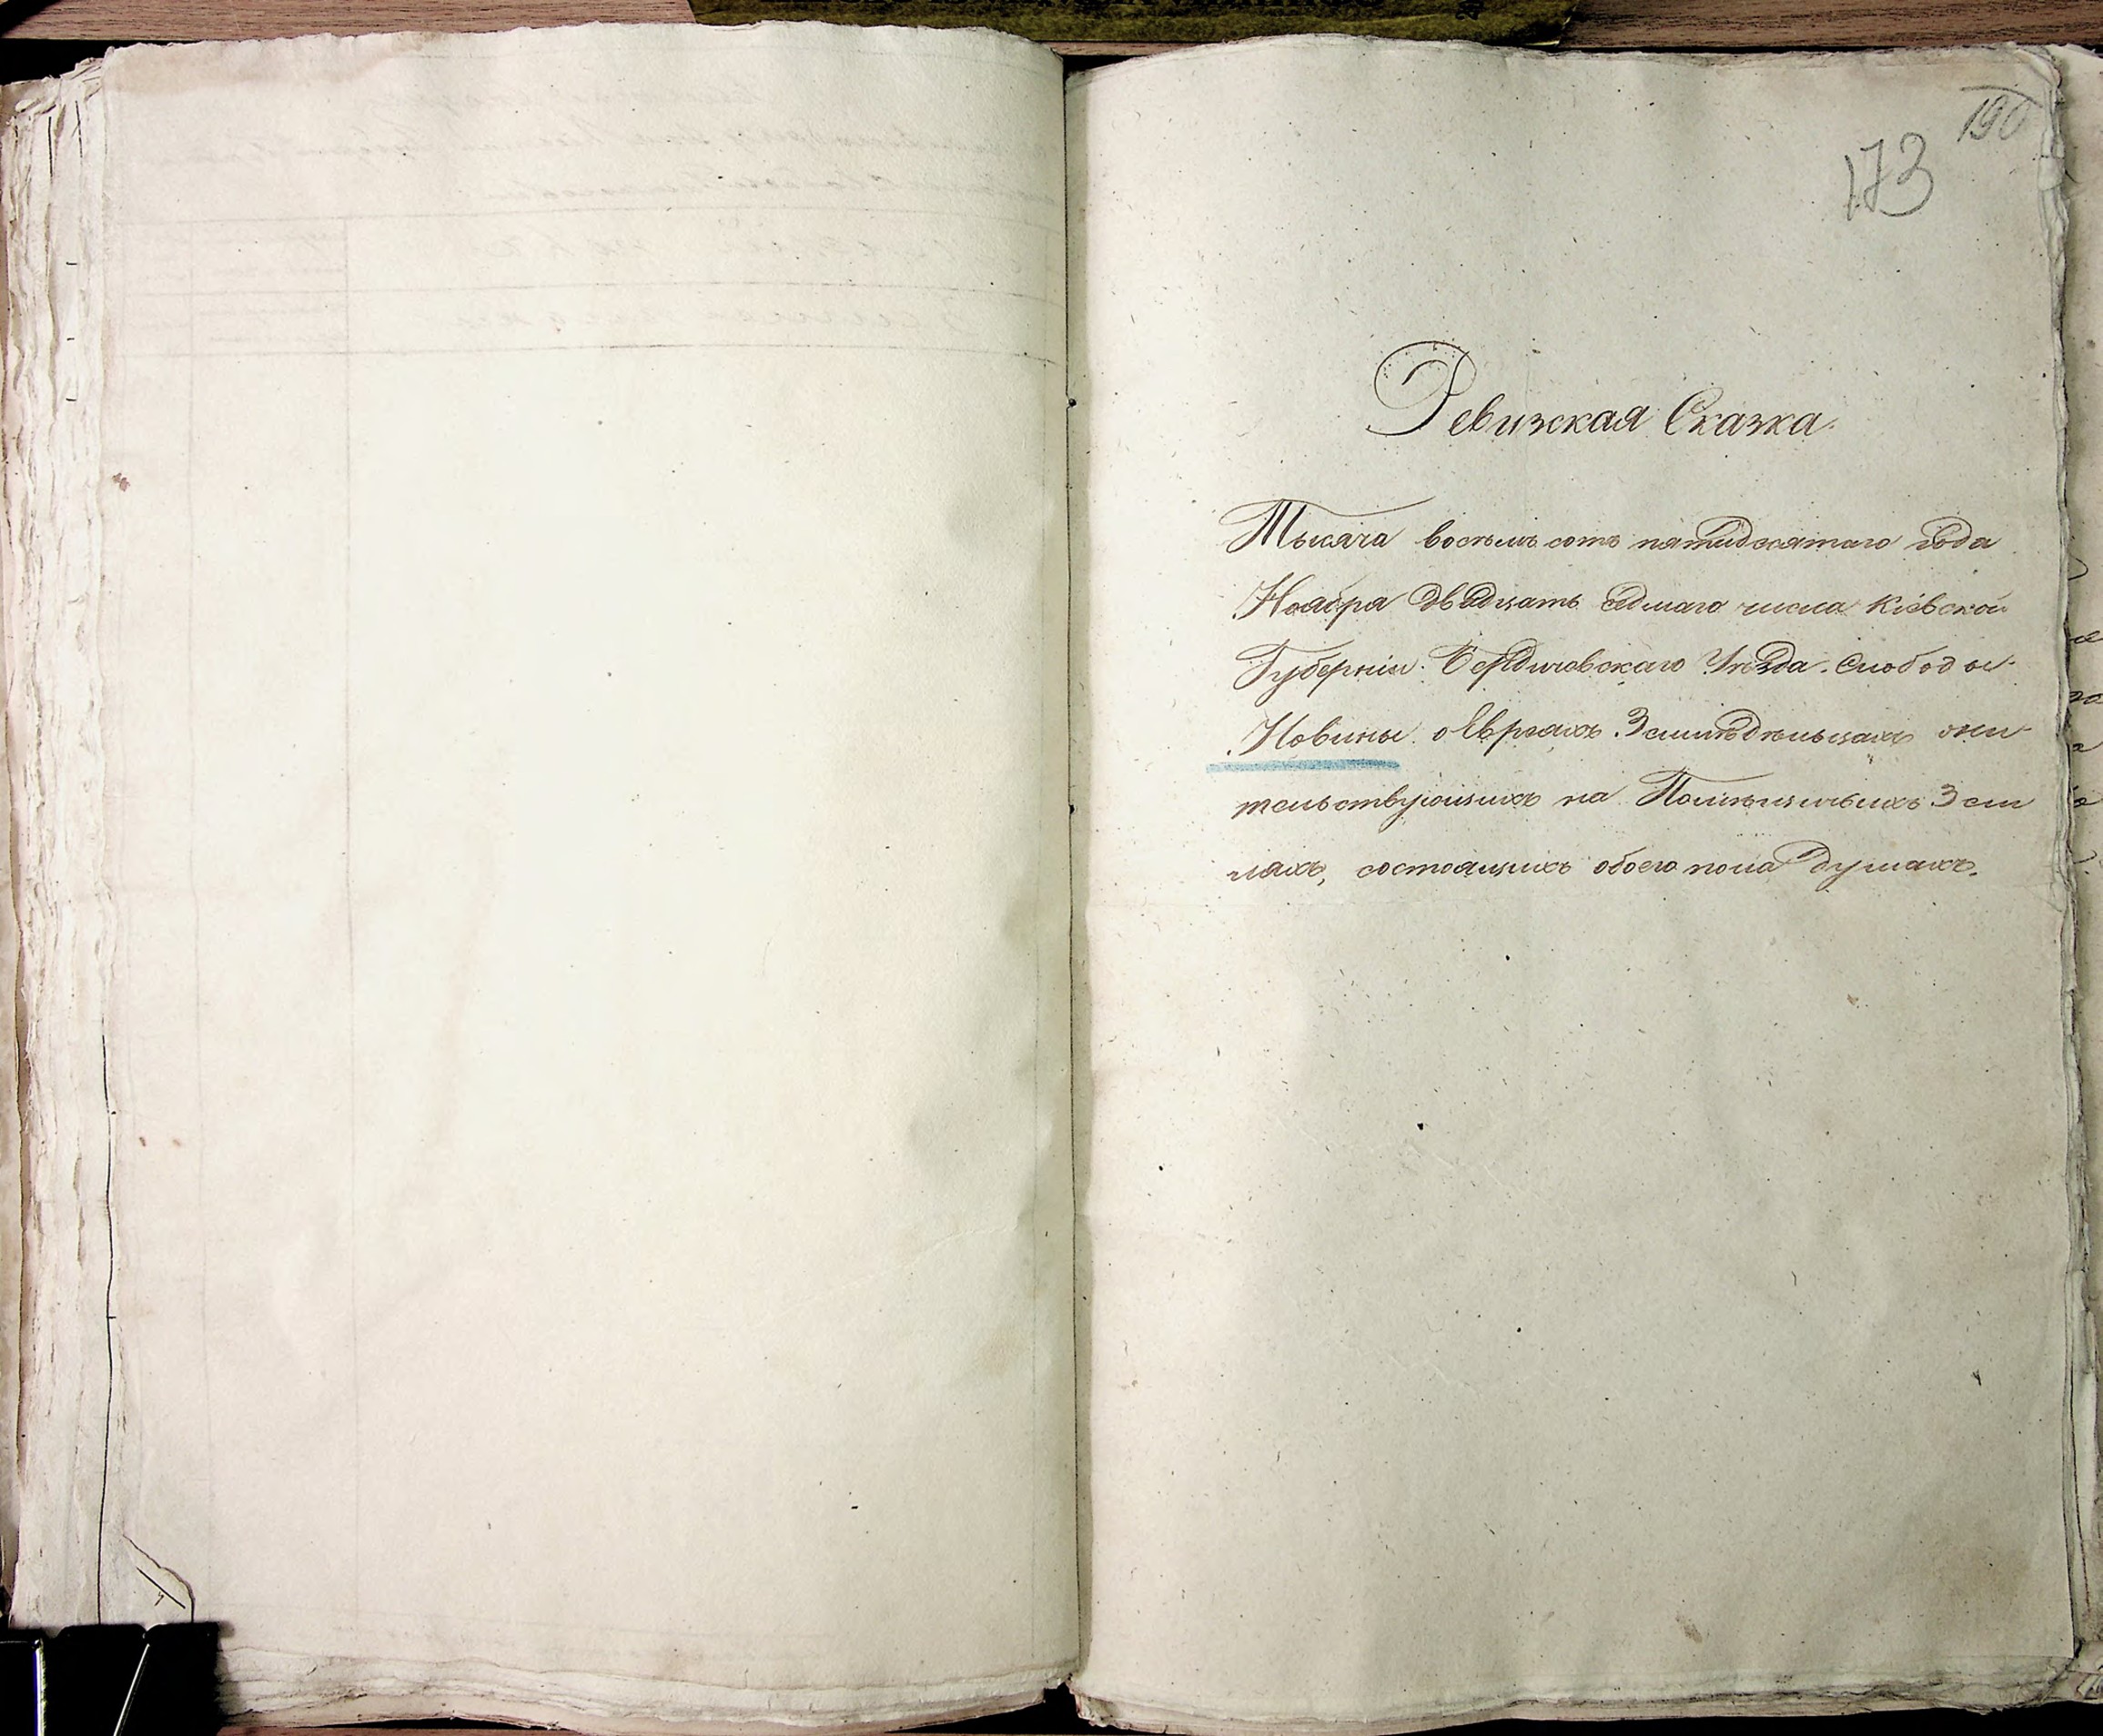 190
173
Ревизкая Сказка.
Тысяча восемь сотъ пятидесятаго года
Ноября двадцать седмаго числа Кіевской
Губерніи Бердичевскаго Уѣзда. Слободы
Новины о Евреяхъ Земледѣльцахъ жи-
тельствующихъ на Помѣщичьихъ Зем
ляхъ, состоящихъ обоего пола душахъ.